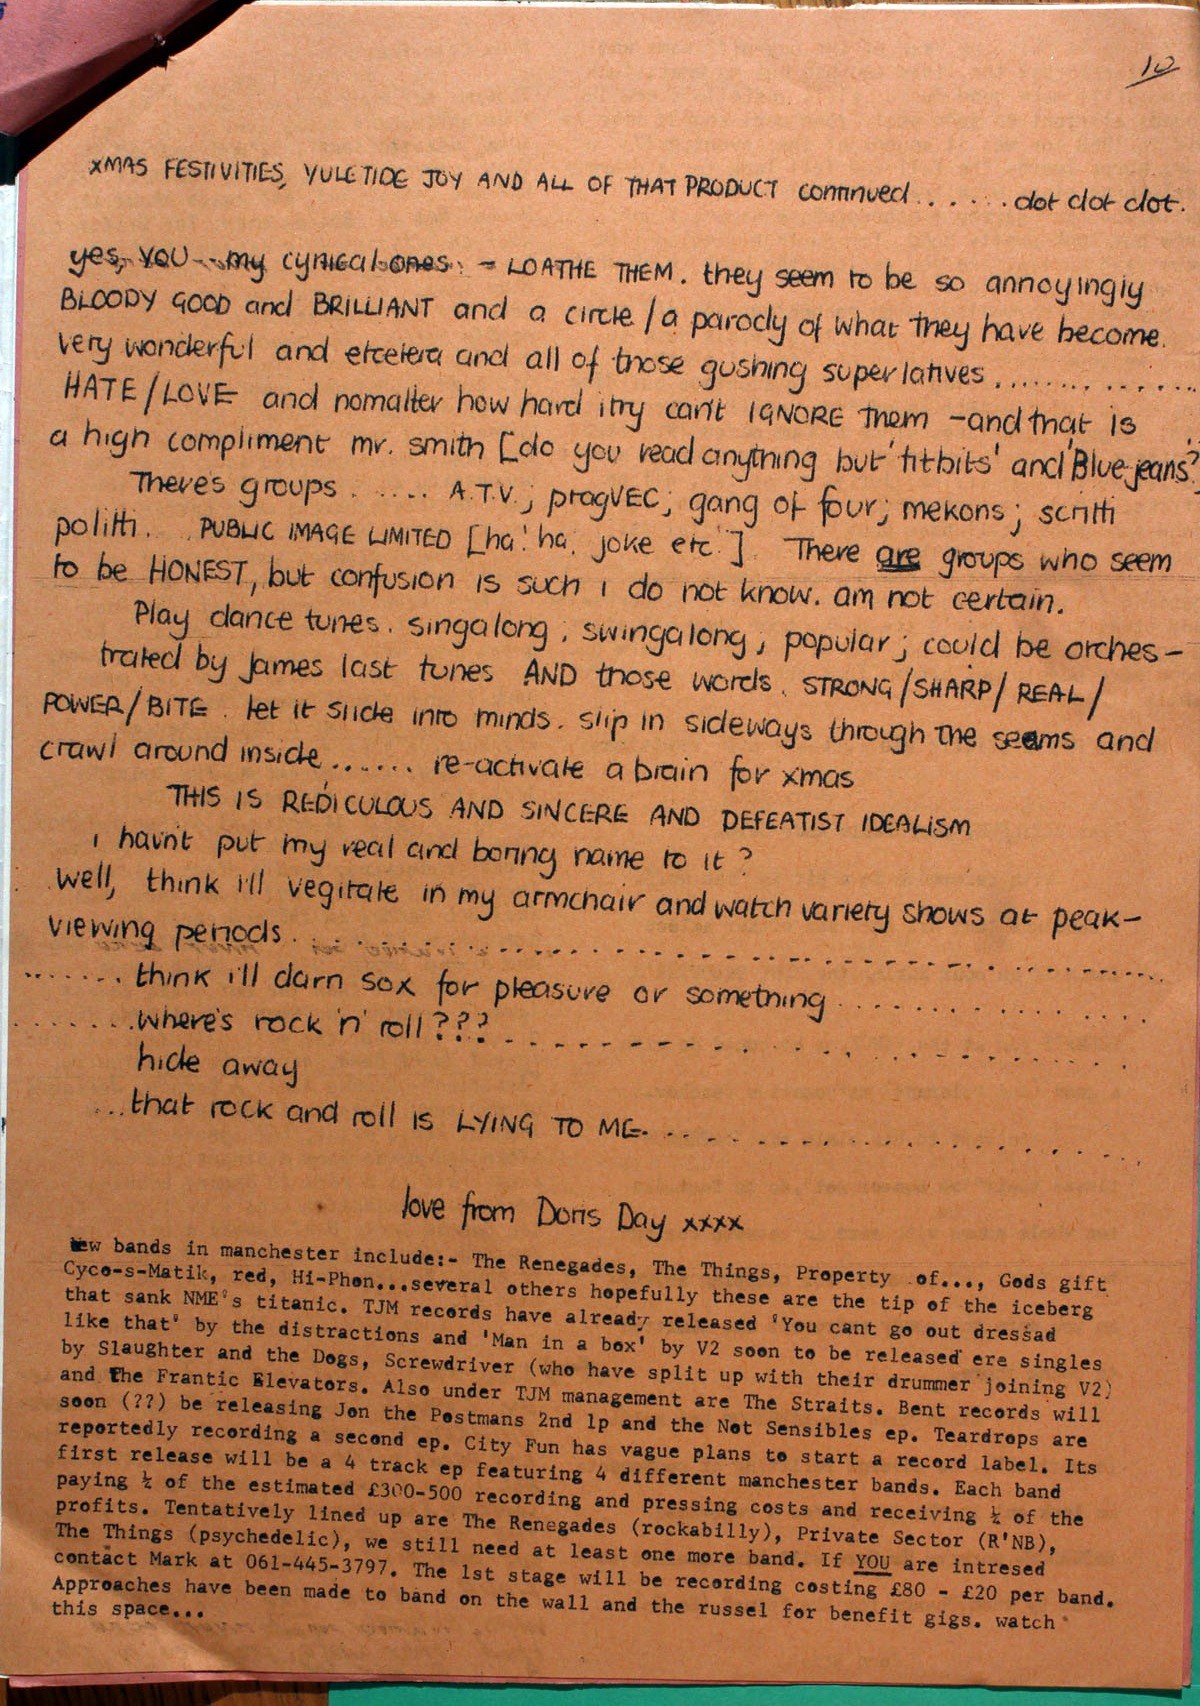 10
XMAS FESTIVITIES, YULETIDE JOY AND ALL OF THAT PRODUCT continued...... dot dot dot.
yes, YOU -- my cynical ones - LOATHE THEM. they seem to be so annoyingly
BLOODY GOOD and BRILLIANT and a circle/a parody of what they have become.
very wonderful and etcetera and all of those gushing superlatives..............
HATE/LOVE and nomatter how hard i try can't IGNORE them - and that is
a high compliment mr. smith [do you read anything but 'titbits' and 'Blue jeans'?]
There's groups ...... A.T.V.; pragVEC; gang of four; mekons; scritti
politti. . PUBLIC IMAGE LIMITED [ha! ha. joke etc.] There are groups who seem
to be HONEST, but confusion is such i do not know. am not certain.
Play dance tunes. singalong, swingalong; popular; could be orches-
trated by James last tunes AND those words. STRONG/SHARP/REAL/
POWER/BITE. let it slide into minds. slip in sideways through the seams and
crawl around inside....... re-activate a brain for xmas
THIS IS REDICULOUS AND SINCERE AND DEFEATIST IDEALISM
i havn't put my real and boring name to it?
Well, think i'll vegitate in my armchair and watch variety shows at peak-
viewing periods..............................
.......think i'll darn sox for pleasure or something..............
.......where's rock 'n' roll???..............
hide away
...that rock and roll is LYING TO ME.................
love from Doris Day xxxx
New bands in manchester include:- The Renegades, The Things, Property of..., Gods gift
Cyco-s-Matik, red, Hi-Phon...several others hopefully these are the tip of the iceberg
that sank NME's titanic. TJM records have already released 'You cant go out dressad
like that' by the distractions and 'Man in a box' by V2 soon to be released ere singles
by Slaughter and the Dogs, Screwdriver (who have split up with their drummer joining V2)
and the Frantic Elevators. Also under TJM management are The Straits. Bent records will
soon (??) be releasing Jon the Postmans 2nd lp and the Not Sensibles ep. Teardrops are
reportedly recording a second ep. City Fun has vague plans to start a record label. Its
first release will be a 4 track ep featuring 4 different manchester bands. Each band
paying ¼ of the estimated £300-500 recording and pressing costs and receiving ¼ of the
profits. Tentatively lined up are The Renegades (rockabilly), Private Sector (R'NB),
The Things (psychedelic), we still need at least one more band. If YOU are intresed
contact Mark at 061-445-3797. The 1st stage will be recording costing £80 - £20 per band.
Approaches have been made to band on the wall and the russel for benefit gigs. watch
this space...